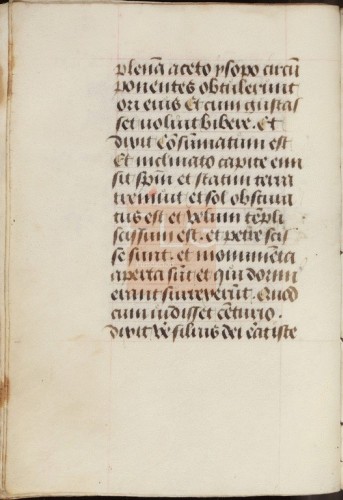 plenā aceto ysopo circū
ponentes obtulerunt
ori eius Et cum gustas
set noluit bibere. Et
dixit Cōsūmatum est
Et inclinato capite emi
sit spm̄ et statim terra
tremuit et sol obscura
tus est et velum tēpli
scissum est. et petre scis
se sunt. et monumēta
aperta sūt et qui dormi
erant surrexerūt. Quod
cum uidisset cēturio.
dixit Ve filius dei erat iste